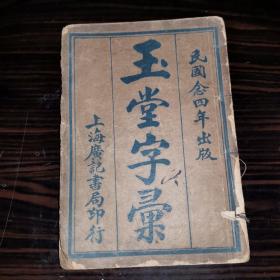 民國念四年出版
玉堂字彙
上海廣記書局印行